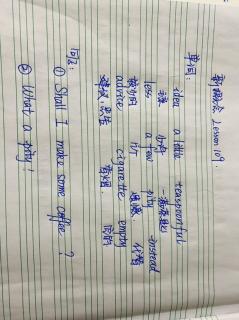 新概念 Lesson 109.
单词:
idea a little teaspoonful
主意 少许 一满茶匙
less a few pity instead
较少的 几个 遗憾 代替
advice cigarette empty
建议,忠告 香烟 空的
① Shall I make some coffee ?
② What a pity !